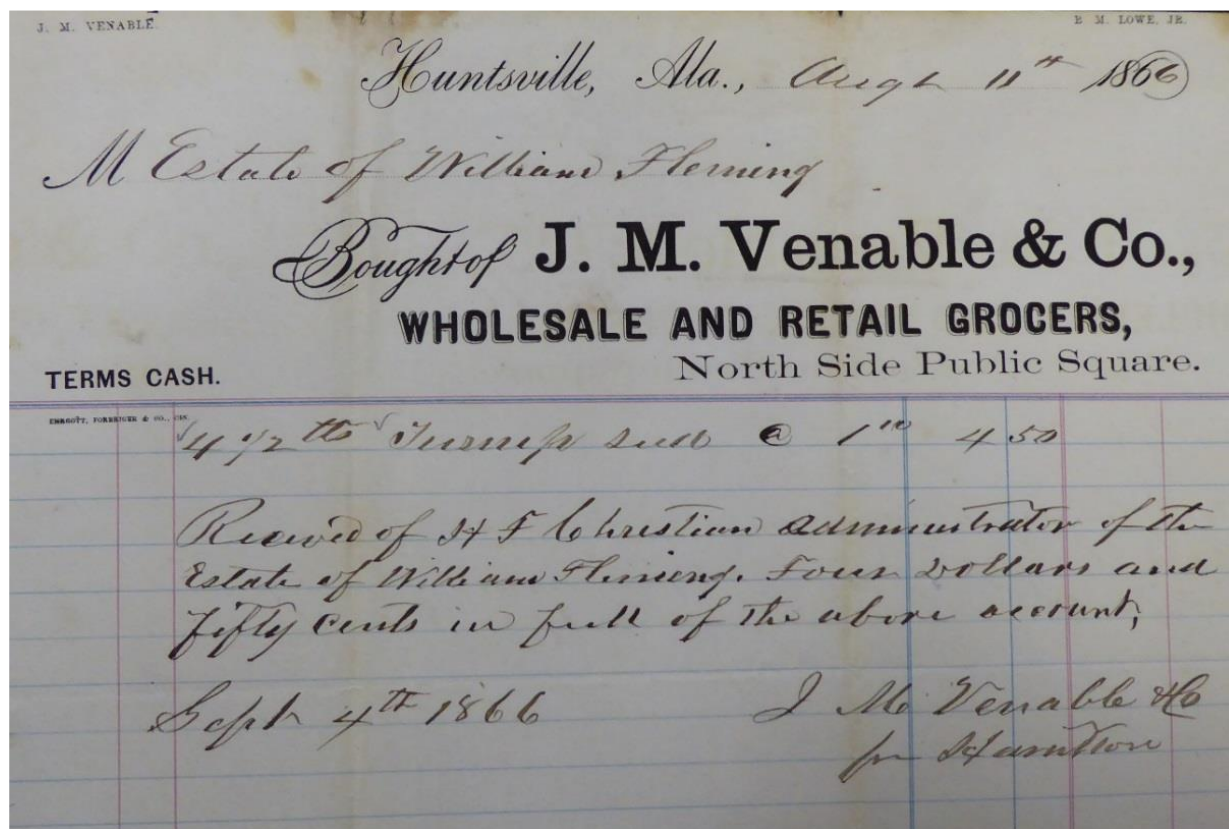 J. M. VENABLE.
B. M. LOWE, JR.
Huntsville, Ala., Augt 11th 1866
M Estate of William Fleming
Bought of J. M. Venable & Co.,
WHOLESALE AND RETAIL GROCERS,
North Side Public Square.
TERMS CASH.
EHRGOTT, FORBRIGER & CO., CIN.
4 1/2 lbs Turnip seed @ 1 00 4 50
Received of H F Christian administrator of the
Estate of William Fleming. Four Dollars and
fifty cents in full of the above account,
Sept 4th 1866 J M Venable & Co
per Hamilton